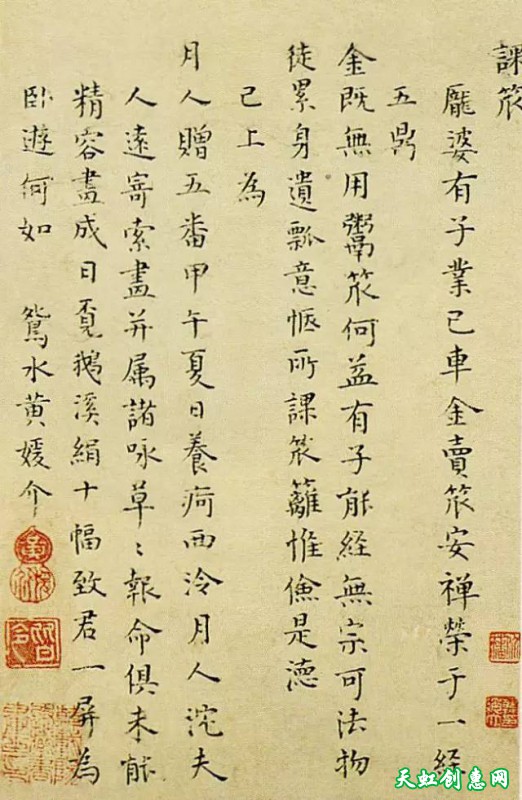 課笊
龐婆有子業已車金賣笊安禪榮于一經
五鼎
金既無用鬻笊何益有子能經無宗可法物
徒累身遺瓢意惬所課笊籬惟儉是德
已上為
月人贈五番甲午夏日養疴西泠月人沱夫
人遠寄索畫并屬諸咏草〻報命俱未能
精容畫成日覔鵝溪絹十幅致君一屏為
卧遊何如 鴛水黄媛介
天虹创惠网